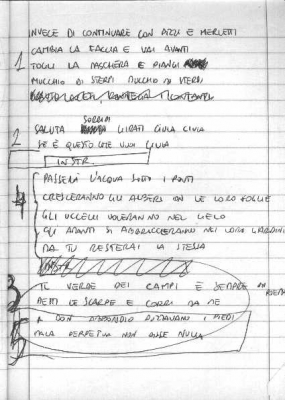 INVECE DI CONTINUARE CON PIZZI E MERLETTI
CAMBIA LA FACCIA E VAI AVANTI
1 TOGLI LA MASCHERA E PIANGI
MUCCHIO DI STERPI MUCCHIO DI
2 SALUTA SORRIDI GIRATI GIULIA GIULIA
SE È QUESTO CHE VUOI GIULIA
INSTR.
PASSERÀ L'ACQUA SOTTO I PONTI
4 CRESCERANNO GLI ALBERI CON LE LORO FOGLIE
GLI UCCELLI VOLERANNO NEL CIELO
GLI AMANTI SI ABBRACCERANNO NEI LORO GIARDINI
MA TU RESTERAI LA STESSA
3 IL VERDE DEI CAMPI È SEMPRE
METTI LE SCARPE E CORRI DA ME
5 E CON I PIEDI
MA LA PERPETUA NON DISSE NULLA